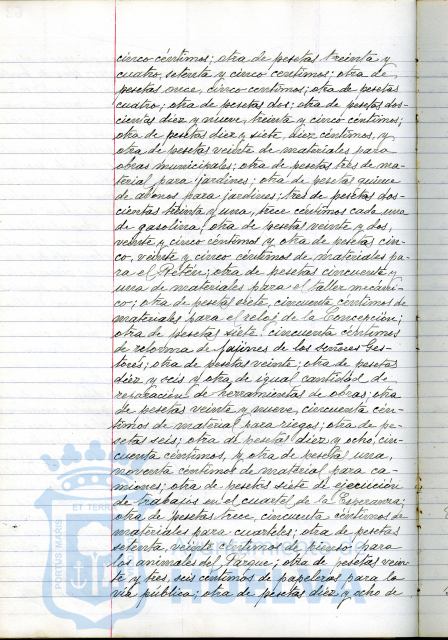 cinco céntimos; otra de pesetas treinta y
cuatro, setenta y cinco centimos; otra de
pesetas once, cinco centimos; otra de pesetas
cuatro; otra de pesetas dos; otra de pesetas dos-
cientas diez y nueve, treinta y cinco céntimos;
otra de pesetas diez y siete, diez céntimos, y
otra de pesetas veinte de materiales para
obras municipales; otra de pesetas tres de ma-
terial para jardines; otra de pesetas quince
de abonos para jardines; tres de pesetas dos-
cientas treinta y una, trece céntimos cada una
de gasolina; otra de pesetas veinte y dos,
veinte y cinco céntimos y otra de pesetas cin-
co, veinte y cinco céntimos de materiales pa-
ra el Retén; otra de pesetas cincuenta y
una de materiales para el taller mecáni-
co; otra de pesetas siete, cincuenta céntimos de
materiales para el reloj de la Concepción;
otra de pesetas siete cincuenta céntimos
de reforma de fajines de los señores Ges-
tores; otra de pesetas veinte; otra de pesetas
diez y seis y otra de igual cantidad de
reparación de herramientas de obras; otra
de pesetas veinte y nueve, cincuenta cén-
timos de material para riegos; otra de pe-
setas seis; otra de pesetas diez y ocho, cin-
cuenta céntimos, y otra de pesetas una,
noventa céntimos de material para ca-
miones; otra de pesetas siete de ejecución
de trabajos en el cuartel de la Esperanza;
otra de pesetas trece, cincuenta céntimos de
materiales para cuarteles; otra de pesetas
setenta, veinte céntimos de pienso para
los animales del Parque; otra de pesetas vein-
te y tres, seis centimos de papeleras para la
vía pública; otra de pesetas diez y ocho de
PORTUS MARIS
ET TERRAE
HUELVA